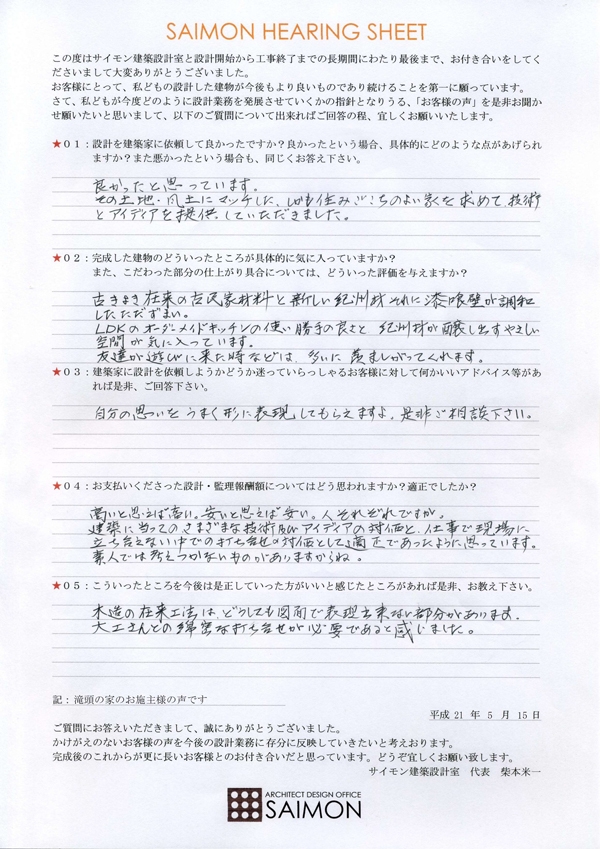 SAIMON HEARING SHEET
この度はサイモン建築設計室と設計開始から工事終了までの長期間にわたり最後まで、お付き合いをしてく
ださいまして大変ありがとうございました。
お客様にとって、私どもの設計した建物が今後もより良いものであり続けることを第一に願っています。
さて、私どもが今度どのように設計業務を発展させていくかの指針となりうる、「お客様の声」を是非お聞か
せ願いたいと思いまして、以下のご質問について出来ればご回答の程、宜しくお願いいたします。
★０１：設計を建築家に依頼して良かったですか？良かったという場合、具体的にどのような点があげられ
ますか？また悪かったという場合も、同じくお答え下さい。
良かったと思っています。
その土地・風土にマッチした、しかも住みごこちのよい家を求めて技術
とアイディアを提供していただきました。
★０２：完成した建物のどういったところが具体的に気に入っていますか？
また、こだわった部分の仕上がり具合については、どういった評価を与えますか？
古きよき在来の古民家材料と新しい紀州材それに漆喰壁が調和
したたたずまい。
LDKのオーダーメイドキッチンの使い勝手の良さと、紀州材が醸し出すやさしい
空間が気に入っています。
友達が遊びに来た時などは、多いに羨ましがってくれます。
★０３：建築家に設計を依頼しようかどうか迷っていらっしゃるお客様に対して何かいいアドバイス等があ
れば是非、ご回答下さい。
自分の思いをうまく形に表現してもらえますよ、是非ご相談下さい。
★０４：お支払いくださった設計・監理報酬額についてはどう思われますか？適正でしたか？
高いと思えば高い。安いと思えば安い。人それぞれですが、
建築に当ってのさまざまな技術及びアイディアの対価と、仕事で現場に
立ち会えない中での打ち合せの対価として適正であったように思っています。
素人では考えつかないものがありますからね。
★０５：こういったところを今後は是正していった方がいいと感じたところがあれば是非、お教え下さい。
木造の在来工法は、どうしても図面で表現出来ない部分があります。
大工さんとの綿密な打ち合せが必要であると感じました。
記：滝頭の家のお施主様の声です
平成 21 年 5 月 15 日
ご質問にお答えいただきまして、誠にありがとうございました。
かけがえのないお客様の声を今後の設計業務に存分に反映していきたいと考えております。
完成後のこれからが更に長いお客様とのお付き合いだと思っています。どうぞ宜しくお願い致します。
サイモン建築設計室 代表 柴本米一
ARCHITECT DESIGN OFFICE
SAIMON